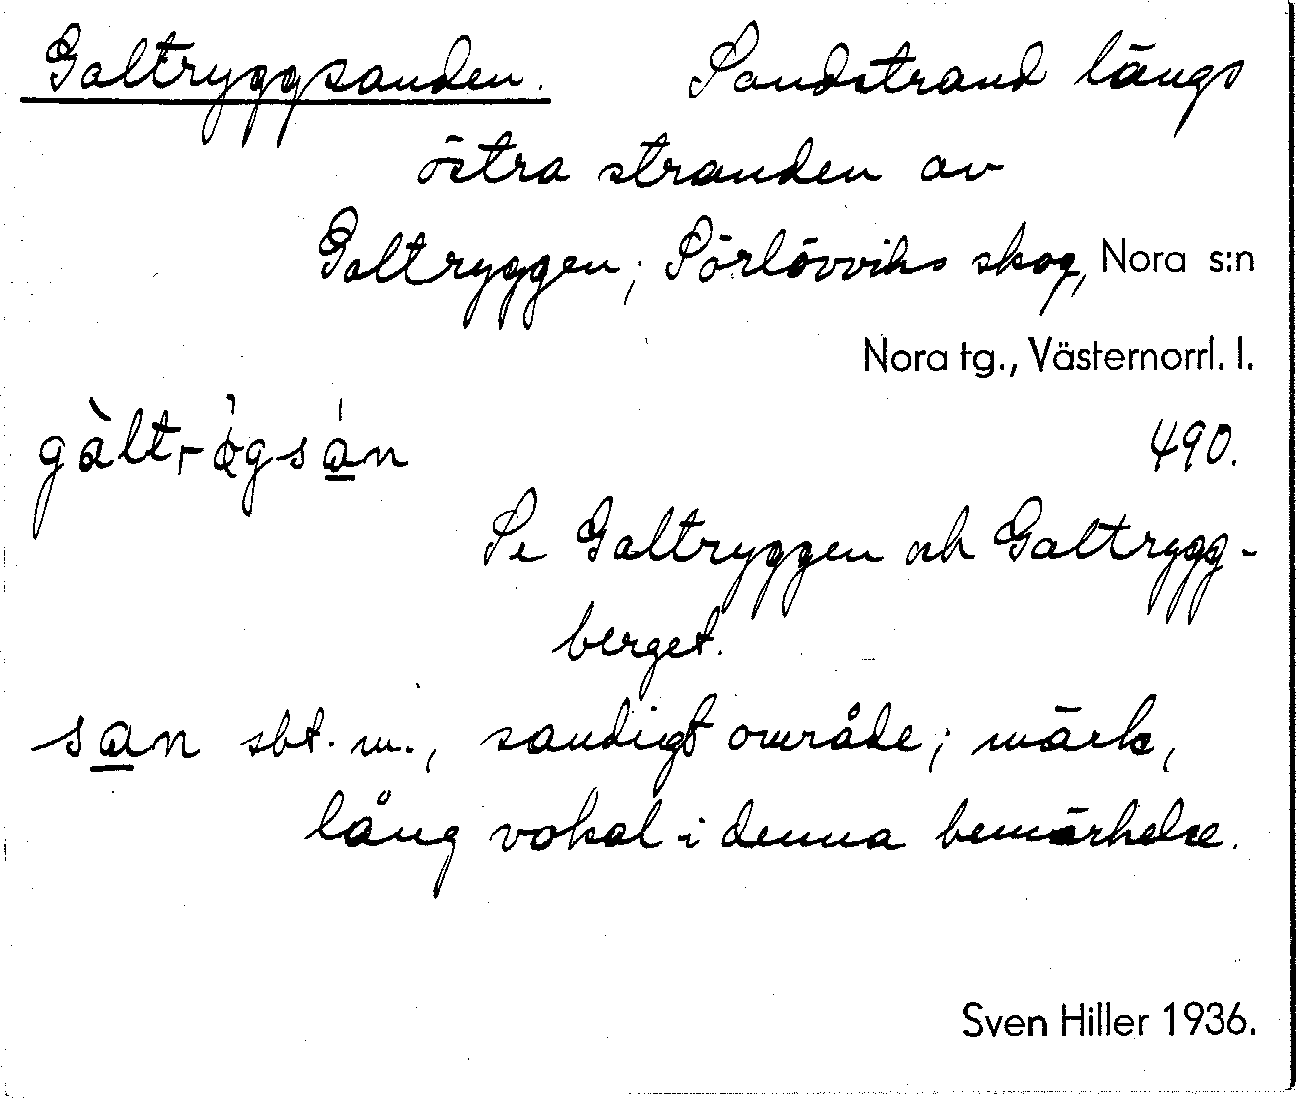 Galtryggsanden. Sandstrand längs
östra stranden av
Galtryggen; Sörlövviks skog, Nora s:n
Nora tg., Västernorrl. l.
gàltrøgsa̲n 490.
Se Galtryggen och Galtrygg-
berget.
sa̲n sbt. m., sandigt område; märk,
lång vokal i denna bemärkelse.
Sven Hiller 1936.